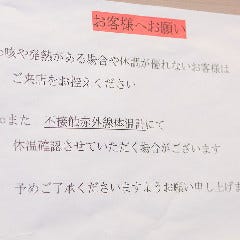 お客様へお願い
○咳や発熱がある場合や体調が優れないお客様は
ご来店をお控えください
○また 不接的赤外線体温計にて
体温確認させていただく場合がございます
予めご了承くださいますようお願い申し上げま